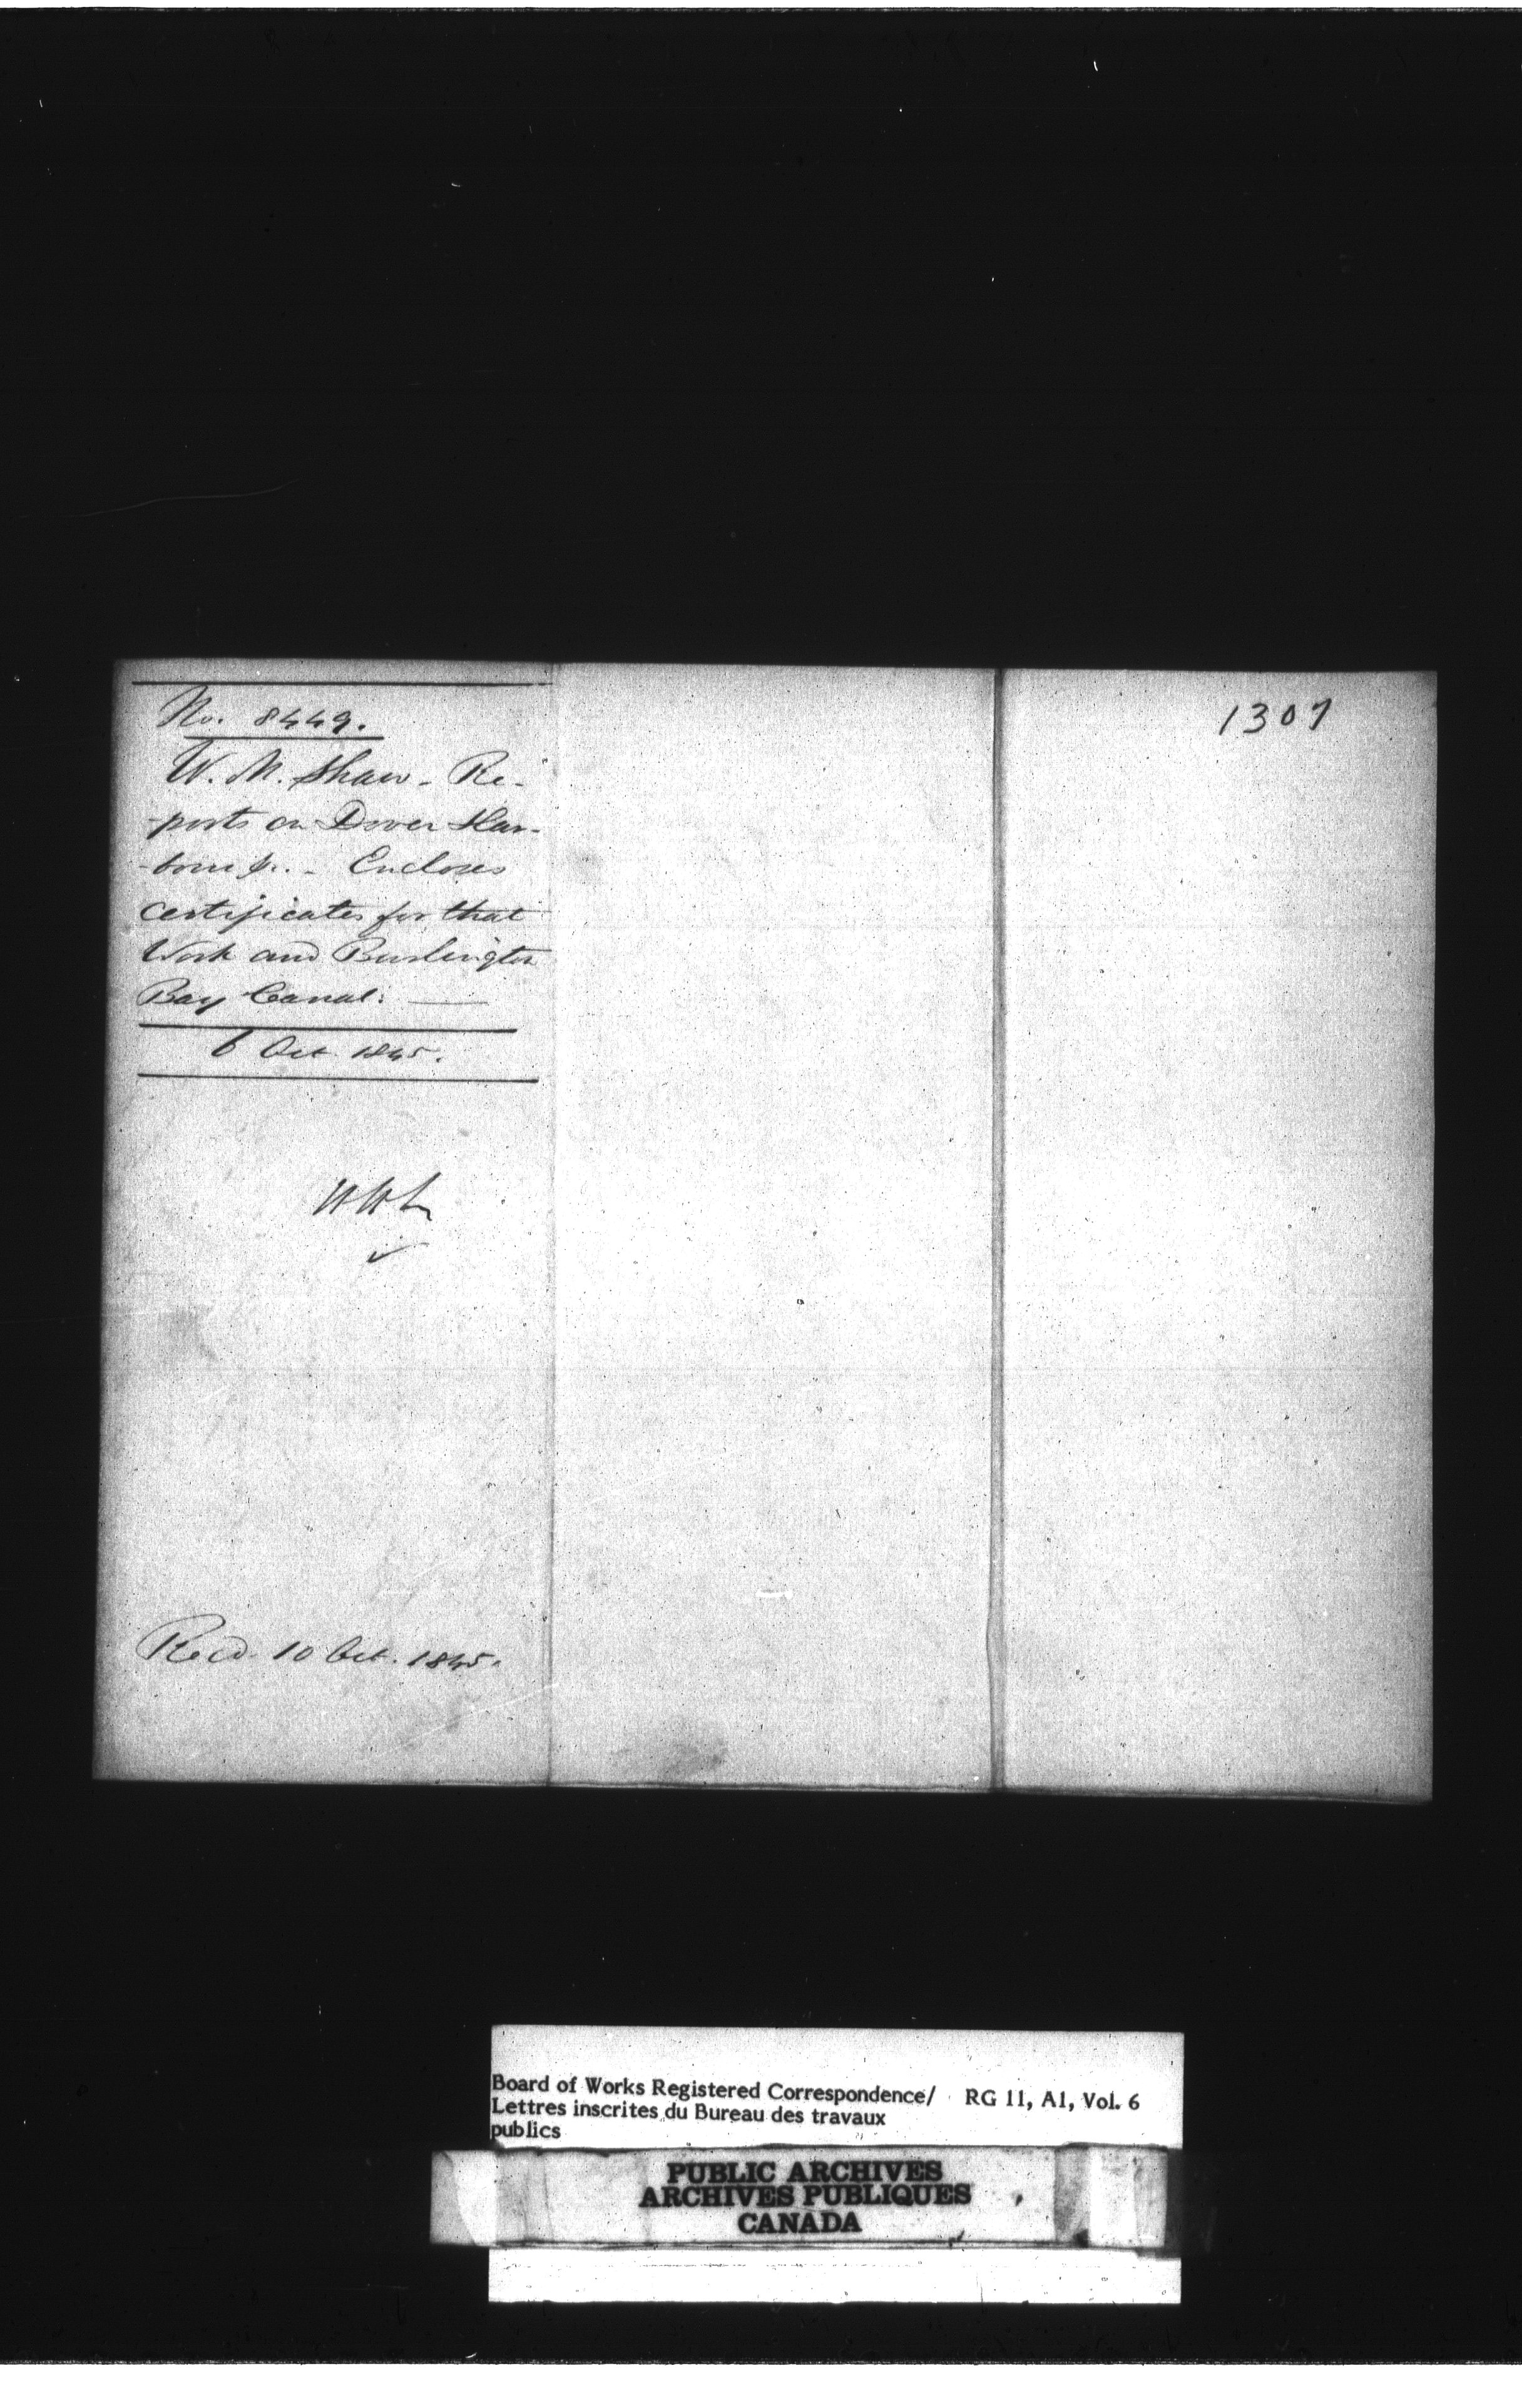 No. 8449.
W. M. Shaw - Re-
-ports on Dover Har-
-bour &c. - Encloses
certificates for that
Work and Burlington
Bay Canal.
6 Oct. 1845.
Recd. 10 Oct. 1845.
1307
Board of Works Registered Correspondence/ RG 11, A1, Vol. 6
Lettres inscrites du Bureau des travaux
publics
PUBLIC ARCHIVES
ARCHIVES PUBLIQUES
CANADA